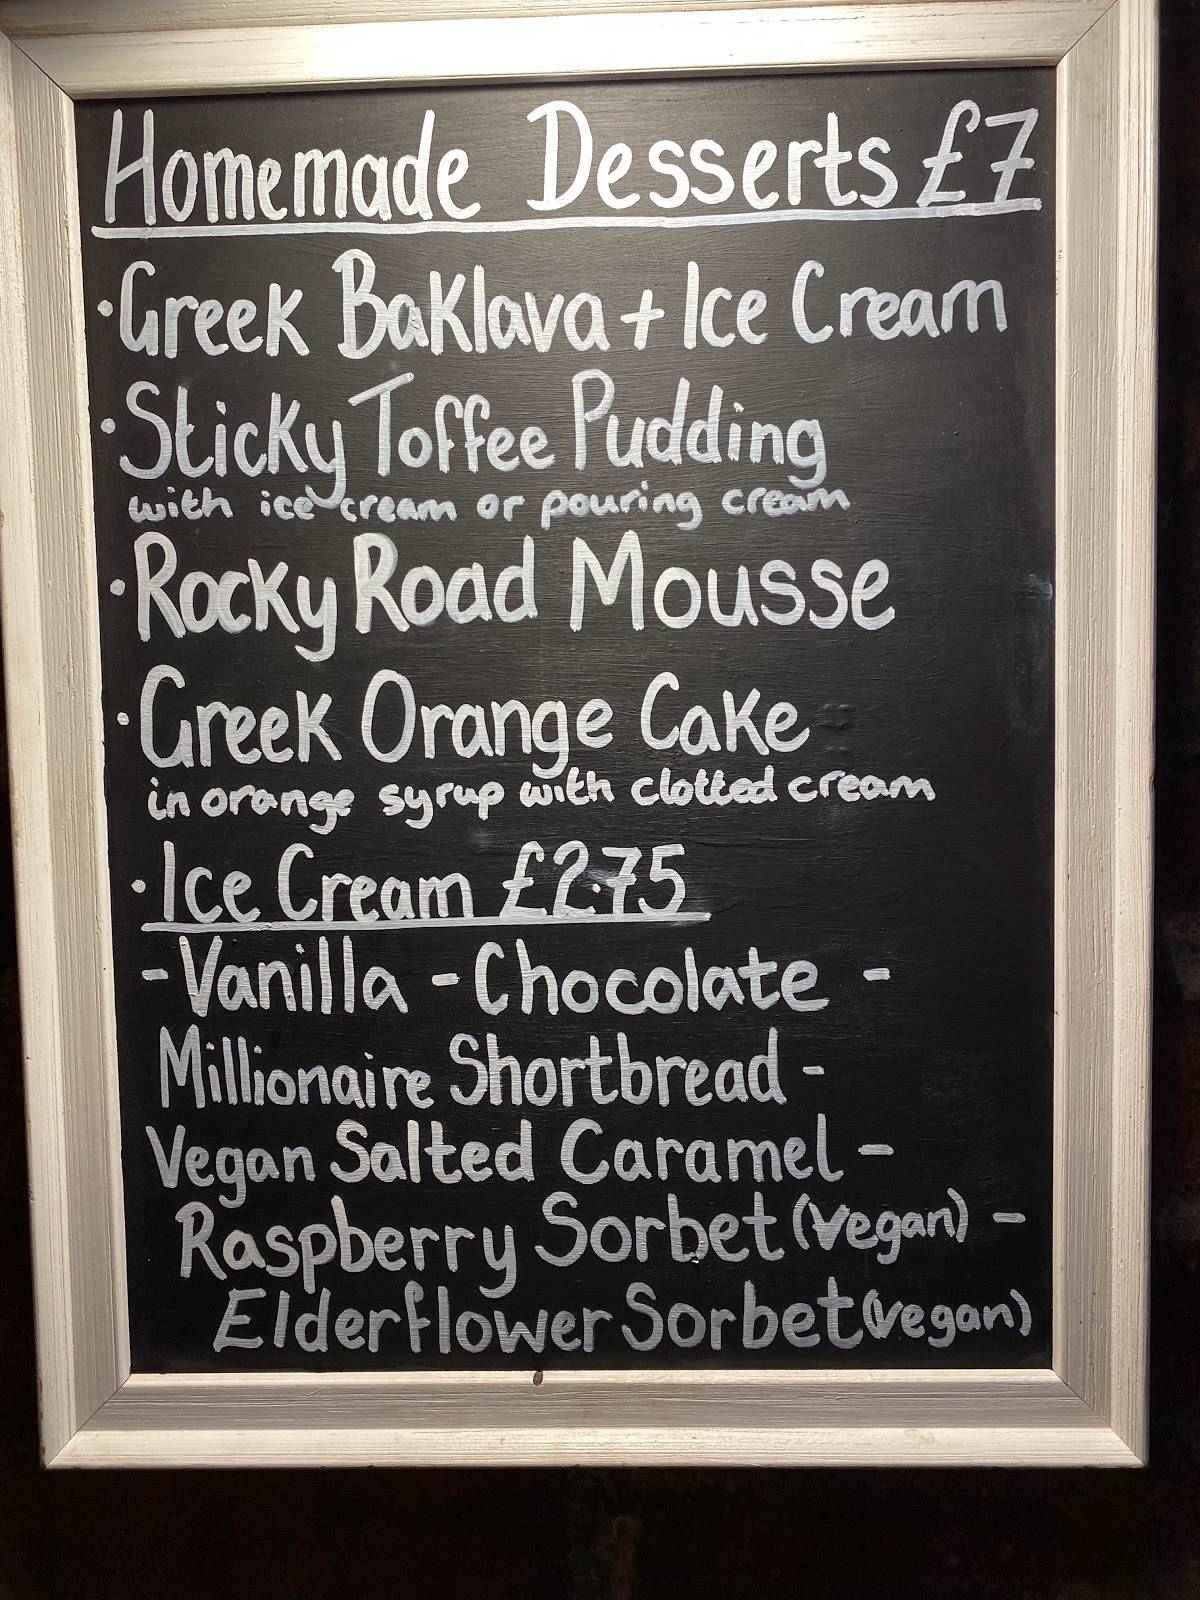 Homemade Desserts £7
·Greek Baklava + Ice Cream
·Sticky Toffee Pudding
with ice cream or pouring cream
·Rocky Road Mousse
·Greek Orange Cake
in orange syrup with clotted cream
·Ice Cream £2.75
-Vanilla - Chocolate -
Millionaire Shortbread -
Vegan Salted Caramel -
Raspberry Sorbet (vegan) -
Elderflower Sorbet (vegan)